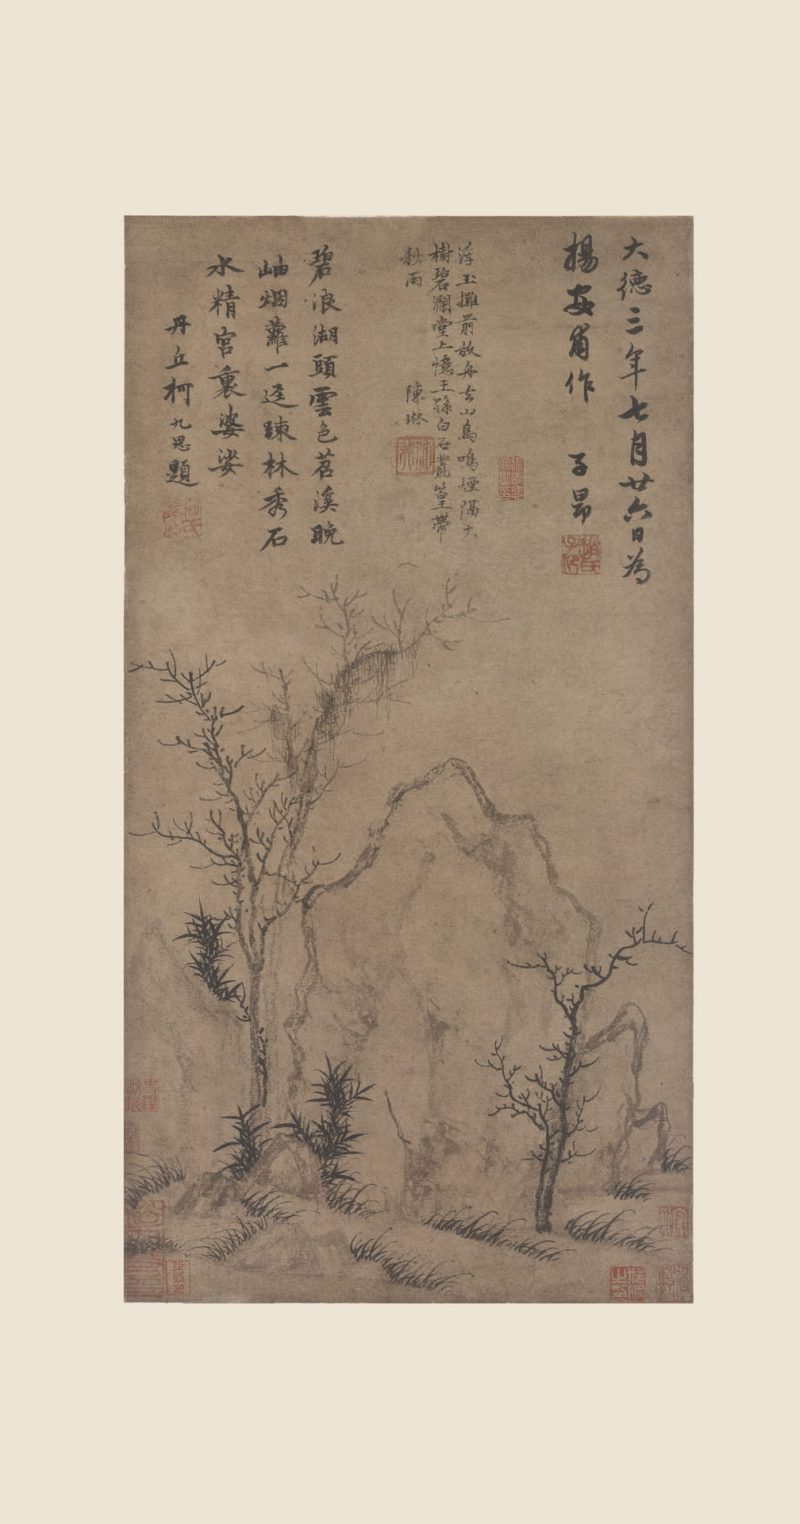 大德三年七月廿六日為
楊安甫作 子昂
浮玉灘前放舟去山鳥鳴煙隔大
樹碧瀾堂上憶王孫白石叢篁帶
秋雨 陳琳
碧浪湖頭雲色苕溪晚
岫烟蘿一逕踈林秀石
水精宮裏婆娑
丹丘柯九思題
趙氏子昂